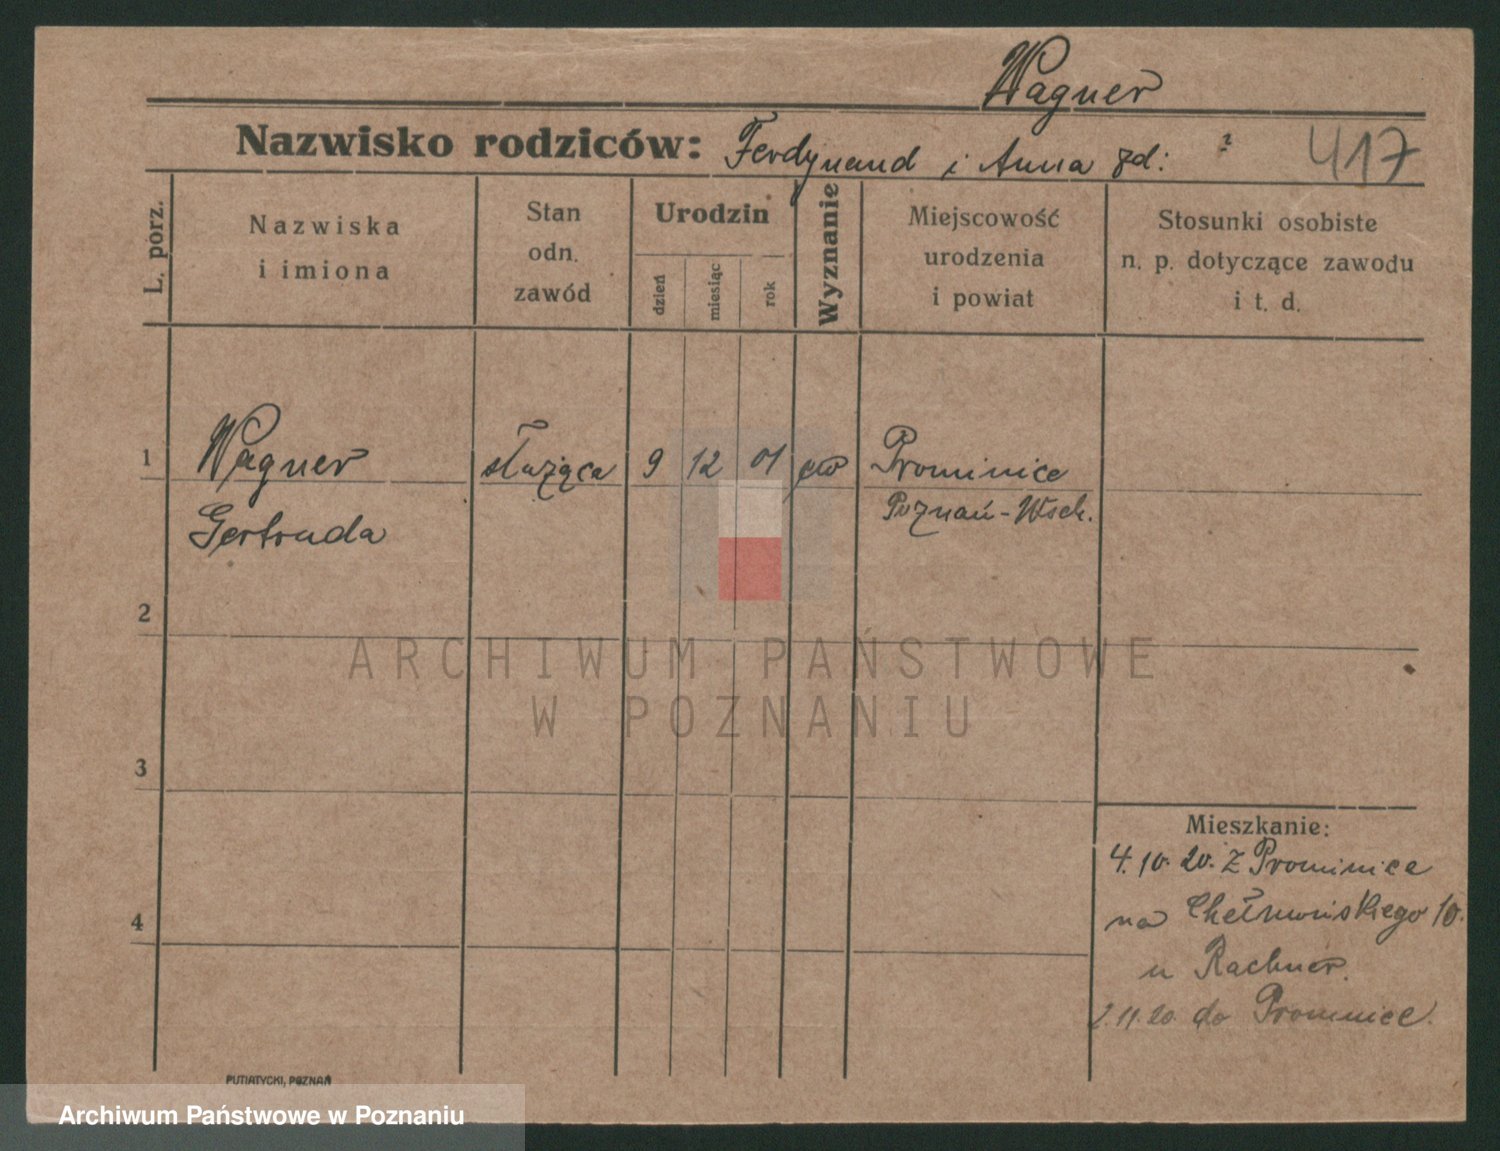 Wagner
Nazwisko rodziców: Ferdynand i Anna zd: ? 417
L. porz.
Nazwiska i imiona
Stan odn. zawód
Urodzin
dzień
miesiąc
rok
Wyznanie
Miejscowość urodzenia i powiat
Stosunki osobiste n. p. dotyczące zawodu i t. d.
1 Wagner służąca 9 12 01 ew Prominice
Gertruda Poznań-Wsch.
2
ARCHIWUM PAŃSTWOWE
W POZNANIU
3
4
Mieszkanie:
4.10.20. z Prominice
na Chełmońskiego 10.
u Rachner.
2.11.20 do Prominice.
PUTIATYCKI, POZNAŃ
Archiwum Państwowe w Poznaniu